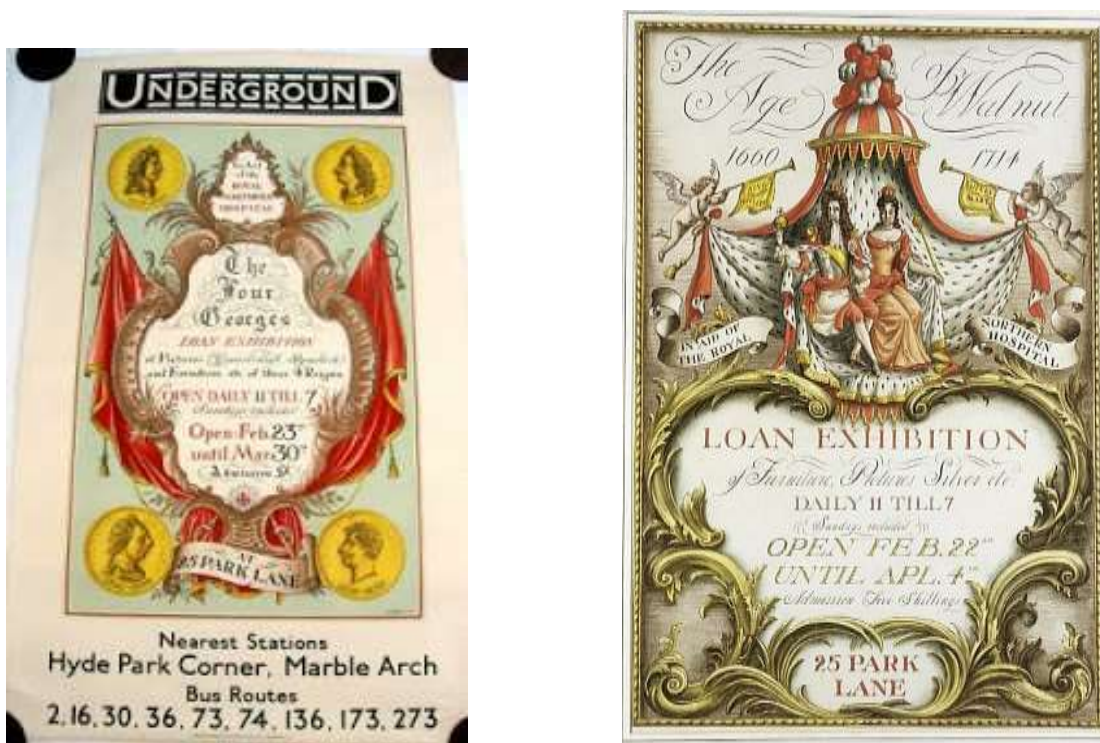 UNDERGROUND
In Aid
of the
ROYAL
NORTHERN
HOSPITAL
The
Four
Georges
LOAN EXHIBITION
of Pictures
and Furniture etc of these 4 Reigns
OPEN DAILY 11 TILL 7
Sundays included
Open: Feb. 23rd
until Mar. 30th
AT
25 PARK LANE
Nearest Stations
Hyde Park Corner, Marble Arch
Bus Routes
2, 16, 30, 36, 73, 74, 136, 173, 273
The Age of Walnut
1660 1714
IN AID OF
THE ROYAL
NORTHERN
HOSPITAL
LOAN EXHIBITION
of Furniture, Pictures Silver etc.
DAILY 11 TILL 7
Sundays included
OPEN FEB. 22nd
UNTIL APL. 4th
Admission Five Shillings
25 PARK
LANE